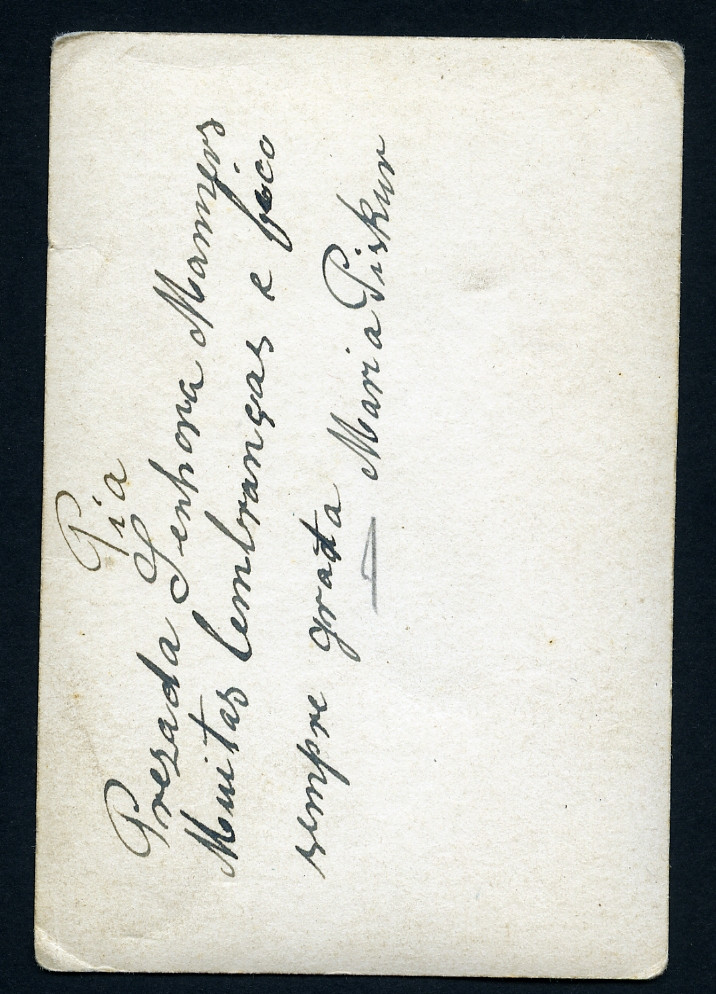 Pia
Prezada Senhora Manners
Muitas lembranças e fico
sempre grata Maria Piskur